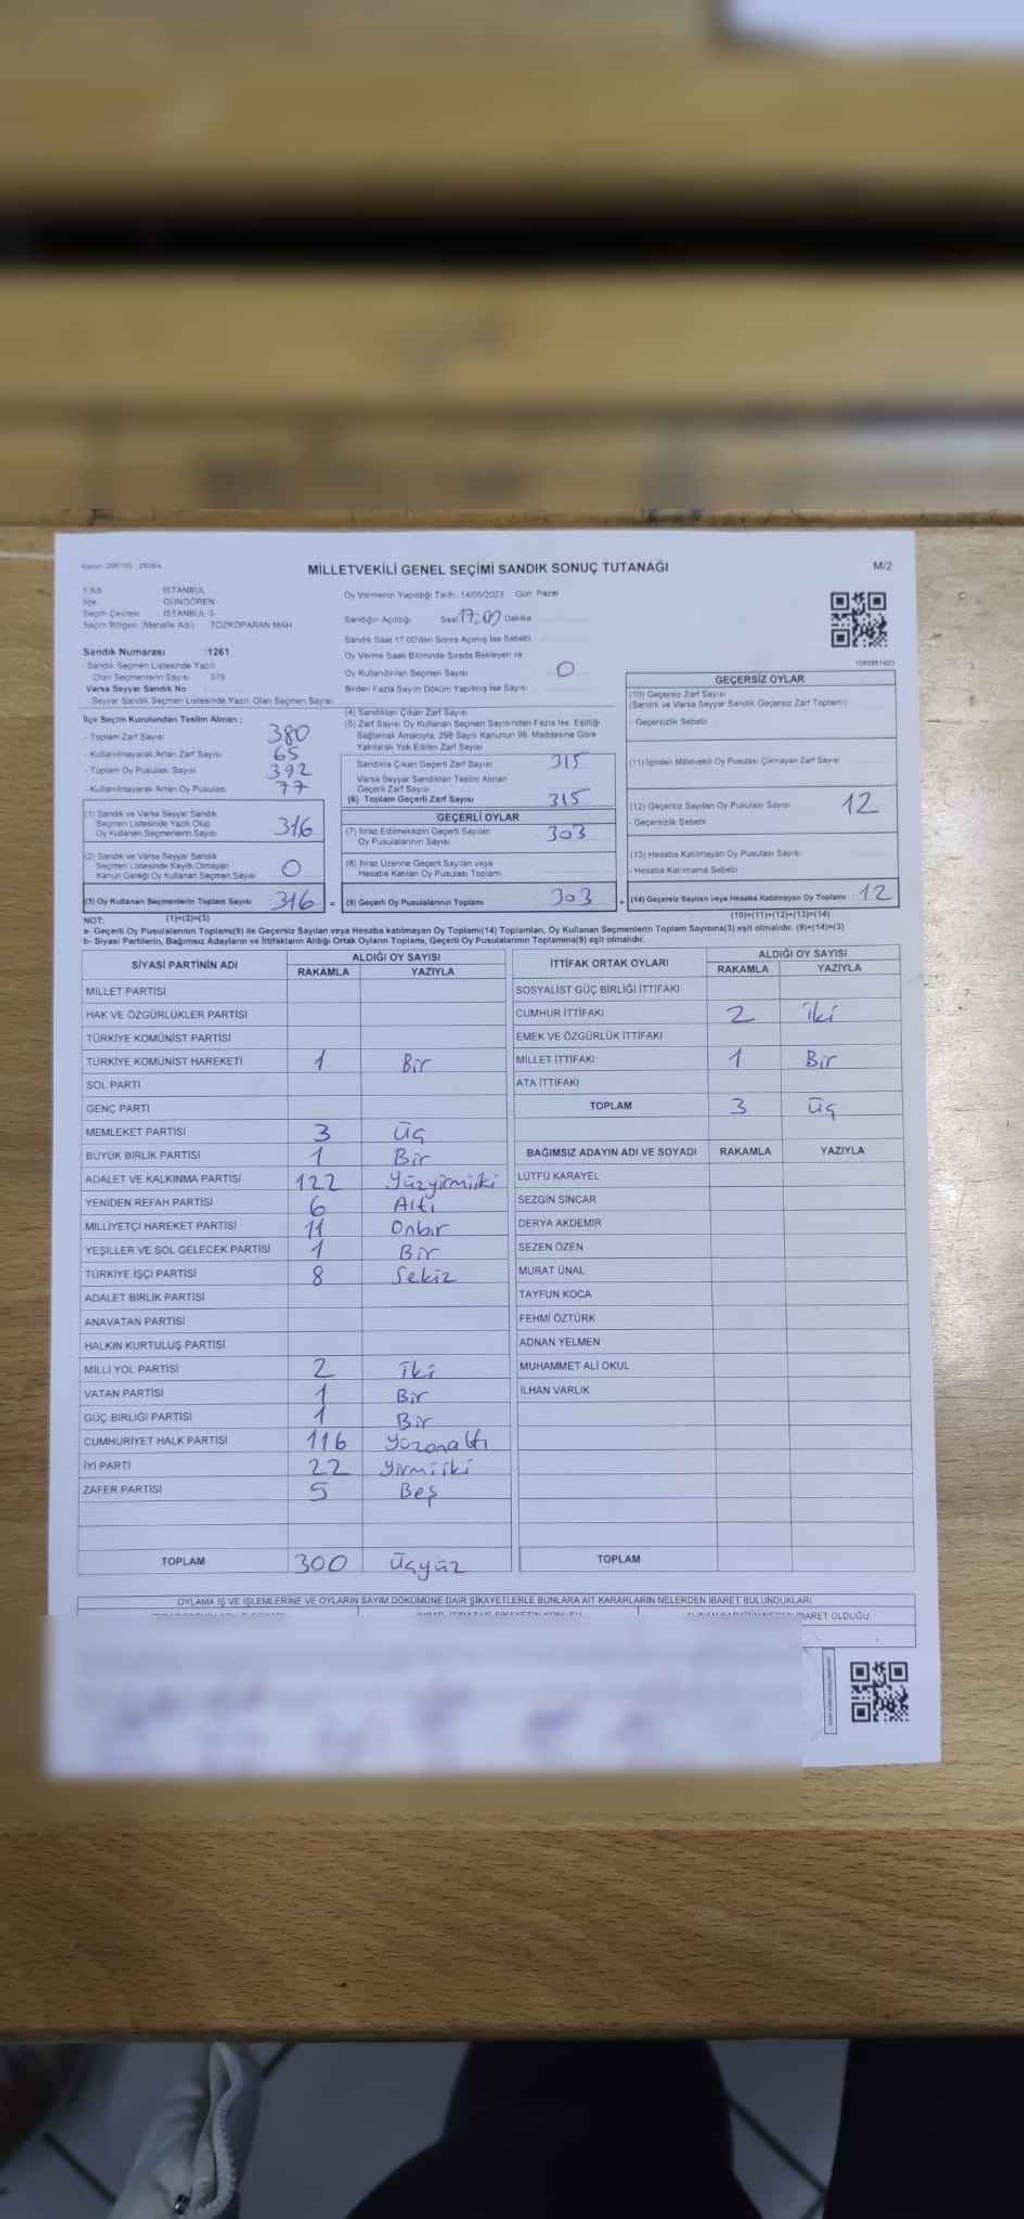 MİLLETVEKİLİ GENEL SEÇİMİ SANDIK SONUÇ TUTANAĞI
M/2
İl Adı İSTANBUL
İlçe GÜNGÖREN
Seçim Çevresi İSTANBUL-3
Seçim Bölgesi (Mahalle Adı) TOZKOPARAN MAH
Sandık Numarası :1261
Sandık Seçmen Listesinde Yazılı
Olan Seçmenlerin Sayısı 379
Varsa Seyyar Sandık No
Seyyar Sandık Seçmen Listesinde Yazılı Olan Seçmen Sayısı
Oy Vermenin Yapıldığı Tarih: 14/05/2023 Gün: Pazar
Sandığın Açıldığı Saat 17:00 Dakika
Sandık Saat 17:00'den Sonra Açılmış İse Sebebi
Oy Verme Saati Bitiminde Sırada Bekleyen ve
Oy Kullandırılan Seçmen Sayısı 0
Birden Fazla Sayım Döküm Yapılmış İse Sayısı
İlçe Seçim Kurulundan Teslim Alınan ;
- Toplam Zarf Sayısı 380
- Kullanılmayarak Artan Zarf Sayısı 65
- Toplam Oy Pusulası Sayısı 392
- Kullanılmayarak Artan Oy Pusulası 77
(1) Sandık ve Varsa Seyyar Sandık
Seçmen Listesinde Yazılı Olup
Oy Kullanan Seçmenlerin Sayısı 316
(2) Sandık ve Varsa Seyyar Sandık
Seçmen Listesinde Kayıtlı Olmayan
Kanun Gereği Oy Kullanan Seçmen Sayısı 0
(3) Oy Kullanan Seçmenlerin Toplam Sayısı 316 =
(4) Sandıktan Çıkan Zarf Sayısı
(5) Zarf Sayısı Oy Kullanan Seçmen Sayısından Fazla İse, Eşitliği
Sağlamak Amacıyla, 298 Sayılı Kanunun 98. Maddesine Göre
Yakılarak Yok Edilen Zarf Sayısı
Sandıkta Çıkan Geçerli Zarf Sayısı 315
Varsa Seyyar Sandıktan Teslim Alınan
Geçerli Zarf Sayısı
(6) Toplam Geçerli Zarf Sayısı 315
GEÇERLİ OYLAR
(7) İtiraz Edilmeksizin Geçerli Sayılan
Oy Pusulalarının Sayısı 303
(8) İtiraz Üzerine Geçerli Sayılan veya
Hesaba Katılan Oy Pusulası Toplamı
(9) Geçerli Oy Pusulalarının Toplamı 303 +
GEÇERSİZ OYLAR
(10) Geçersiz Zarf Sayısı
(Sandık ve Varsa Seyyar Sandık Geçersiz Zarf Toplamı)
- Geçersizlik Sebebi
(11) İçinden Milletvekili Oy Pusulası Çıkmayan Zarf Sayısı
(12) Geçersiz Sayılan Oy Pusulası Sayısı 12
- Geçersizlik Sebebi
(13) Hesaba Katılmayan Oy Pusulası Sayısı
- Hesaba Katılmama Sebebi
(14) Geçersiz Sayılan veya Hesaba Katılmayan Oy Toplamı 12
NOT: (1)+(2)=(3) (10)+(11)+(12)+(13)=(14)
a- Geçerli Oy Pusulalarının Toplamı(9) ile Geçersiz Sayılan veya Hesaba katılmayan Oy Toplamı(14) Toplamları, Oy Kullanan Seçmenlerin Toplam Sayısına(3) eşit olmalıdır. (9)+(14)=(3)
b- Siyasi Partilerin, Bağımsız Adayların ve İttifakların Aldığı Ortak Oyların Toplamı, Geçerli Oy Pusulalarının Toplamına(9) eşit olmalıdır.
SİYASİ PARTİNİN ADI ALDIĞI OY SAYISI
RAKAMLA YAZIYLA
MİLLET PARTİSİ
HAK VE ÖZGÜRLÜKLER PARTİSİ
TÜRKİYE KOMÜNİST PARTİSİ
TÜRKİYE KOMÜNİST HAREKETİ 1 Bir
SOL PARTİ
GENÇ PARTİ
MEMLEKET PARTİSİ 3 Üç
BÜYÜK BİRLİK PARTİSİ 1 Bir
ADALET VE KALKINMA PARTİSİ 122 Yüzyirmiiki
YENİDEN REFAH PARTİSİ 6 Altı
MİLLİYETÇİ HAREKET PARTİSİ 11 Onbir
YEŞİLLER VE SOL GELECEK PARTİSİ 1 Bir
TÜRKİYE İŞÇİ PARTİSİ 8 Sekiz
ADALET BİRLİK PARTİSİ
ANAVATAN PARTİSİ
HALKIN KURTULUŞ PARTİSİ
MİLLİ YOL PARTİSİ 2 İki
VATAN PARTİSİ 1 Bir
GÜÇ BİRLİĞİ PARTİSİ 1 Bir
CUMHURİYET HALK PARTİSİ 116 Yüzonaltı
İYİ PARTİ 22 Yirmiiki
ZAFER PARTİSİ 5 Beş
TOPLAM 300 Üçyüz
İTTİFAK ORTAK OYLARI ALDIĞI OY SAYISI
RAKAMLA YAZIYLA
SOSYALİST GÜÇ BİRLİĞİ İTTİFAKI
CUMHUR İTTİFAKI 2 İki
EMEK VE ÖZGÜRLÜK İTTİFAKI
MİLLET İTTİFAKI 1 Bir
ATA İTTİFAKI
TOPLAM 3 Üç
BAĞIMSIZ ADAYIN ADI VE SOYADI RAKAMLA YAZIYLA
LÜTFÜ KARAYEL
SEZGİN SİNCAR
DERYA AKDEMİR
SEZEN ÖZEN
MURAT ÜNAL
TAYFUN KOCA
FEHMİ ÖZTÜRK
ADNAN YELMEN
MUHAMMET ALİ OKUL
İLHAN VARLIK
TOPLAM
OYLAMA İŞ VE İŞLEMLERİNE VE OYLARIN SAYIM DÖKÜMÜNE DAİR ŞİKAYETLERLE BUNLARA AİT KARARLARIN NELERDEN İBARET BULUNDUKLARI
İBARET OLDUĞU